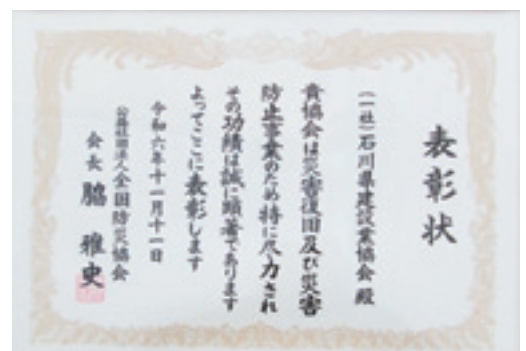 表彰状
(一社)石川県建設業協会 殿
貴協会は災害復旧及び災害
防止事業のため特に尽力され
その功績は誠に顕著であります
よってここに表彰します
令和六年十一月十一日
公益社団法人全国防災協会
会長 脇 雅史